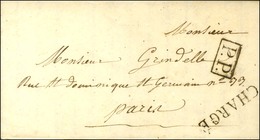 Monsieur
Monsieur Grindelle
P.P.
Rue St dominique St Germain no 93
Paris
CHARGÉ